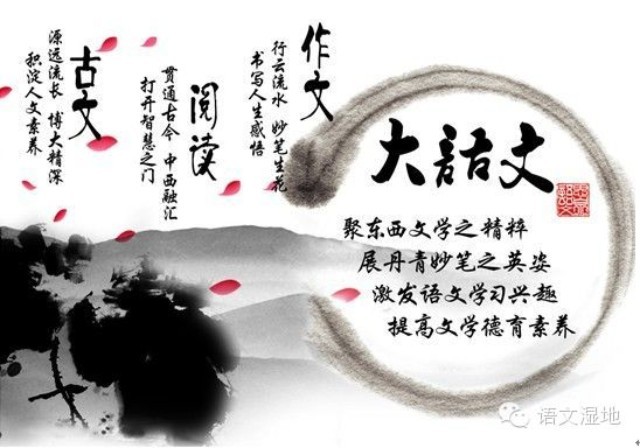 大話文
聚东西文学之精粹
展丹青妙笔之英姿
激发语文学习兴趣
提高文学德育素养
作文
行云流水 妙笔生花
书写人生感悟
阅读
贯通古今 中西融汇
打开智慧之门
古文
源远流长 博大精深
积淀人文素养
语文湿地